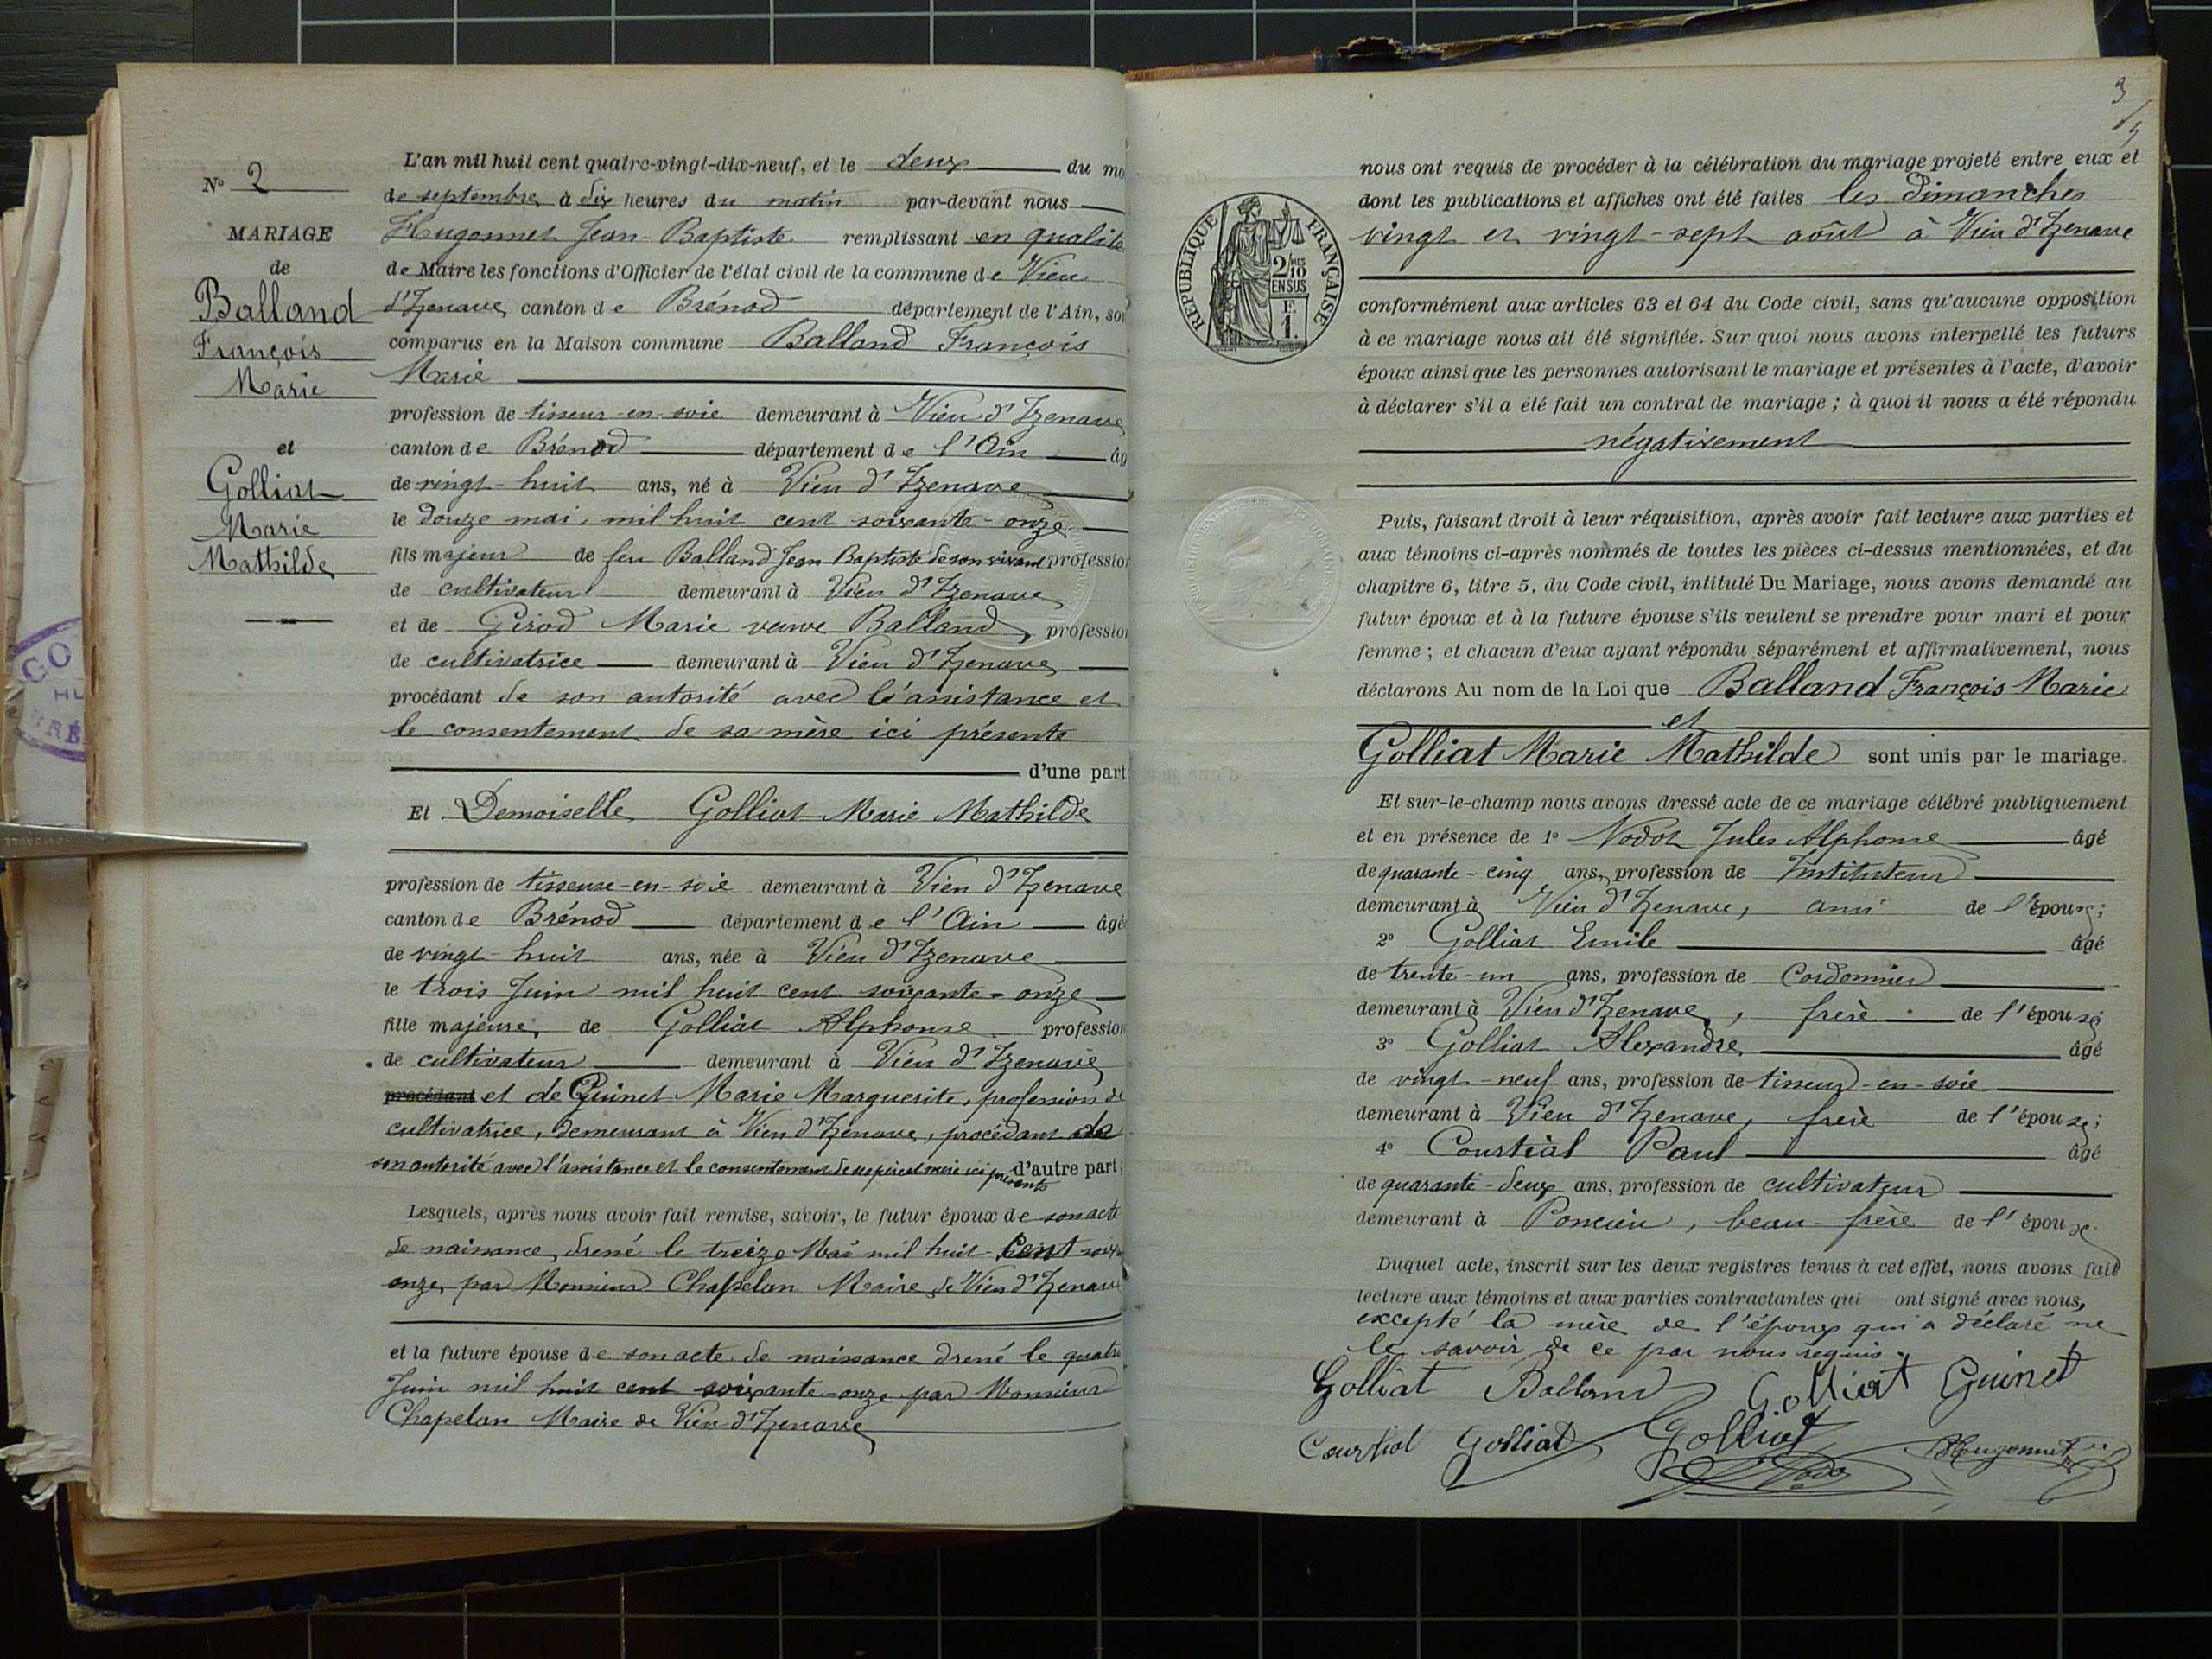 N° 2
MARIAGE
de
Balland
François
Marie
et
Golliat
Marie
Mathilde
L'an mil huit cent quatre-vingt-dix-neuf, et le deux du mo
de septembre à dix heures du matin par-devant nous
Hugonnet Jean-Baptiste remplissant en qualité
de Maire les fonctions d'Officier de l'état civil de la commune de Vieu
d'Izenave, canton de Brénod département de l'Ain, son
comparus en la Maison commune Balland François
Marie
profession de tisseur-en-soie demeurant à Vieu d'Izenave
canton de Brénod département de l'Ain âg
de vingt-huit ans, né à Vieu d'Izenave
le douze mai, mil huit cent soixante-onze
fils majeur de feu Balland Jean Baptiste de son vivant profession
de cultivateur demeurant à Vieu d'Izenave
et de Girod Marie veuve Balland, profession
de cultivatrice demeurant à Vieu d'Izenave
procédant de son autorité avec l'assistance et
le consentement de sa mère ici présente
d'une part
Et Demoiselle Golliat Marie Mathilde
profession de tisseuse-en-soie demeurant à Vieu d'Izenave
canton de Brénod département de l'Ain âgé
de vingt-huit ans, née à Vieu d'Izenave
le trois Juin mil huit cent soixante-onze
fille majeure, de Golliat Alphonse profession
de cultivateur demeurant à Vieu d'Izenave
procédant et de Guinet Marie Marguerite, profession de
cultivatrice, demeurant à Vieu d'Izenave, procédant de
son autorité avec l'assistance et le consentement de ses père et mère ici présents d'autre part;
Lesquels, après nous avoir fait remise, savoir, le futur époux de son acte
de naissance, dressé le treize Mai mil huit-Cent soix
onze, par Monsieur Chapelan Maire de Vieu d'Izenave
et la future épouse de son acte de naissance dressé le quatre
Juin mil huit cent soixante-onze par Monsieur
Chapelan Maire de Vieu d'Izenave
3
REPUBLIQUE FRANÇAISE
2/10
EN SUS
F.
1.
nous ont requis de procéder à la célébration du mariage projeté entre eux et
dont les publications et affiches ont été faites les Dimanches
vingt et vingt-sept août à Vieu d'Izenave
conformément aux articles 63 et 64 du Code civil, sans qu'aucune opposition
à ce mariage nous ait été signifiée. Sur quoi nous avons interpellé les futurs
époux ainsi que les personnes autorisant le mariage et présentes à l'acte, d'avoir
à déclarer s'il a été fait un contrat de mariage; à quoi il nous a été répondu
négativement
Puis, faisant droit à leur réquisition, après avoir fait lecture aux parties et
aux témoins ci-après nommés de toutes les pièces ci-dessus mentionnées, et du
chapitre 6, titre 5, du Code civil, intitulé Du Mariage, nous avons demandé au
futur époux et à la future épouse s'ils veulent se prendre pour mari et pour
femme; et chacun d'eux ayant répondu séparément et affirmativement, nous
déclarons Au nom de la Loi que Balland François Marie
et
Golliat Marie Mathilde sont unis par le mariage.
Et sur-le-champ nous avons dressé acte de ce mariage célébré publiquement
et en présence de 1° Nodot Jules Alphonse âgé
de quarante-cinq ans, profession de Instituteur
demeurant à Vieu d'Izenave, ami de l'époux;
2° Golliat Emile âgé
de trente-un ans, profession de Cordonnier
demeurant à Vieu d'Izenave, frère de l'épouse;
3° Golliat Alexandre âgé
de vingt-neuf ans, profession de tisseur-en-soie
demeurant à Vieu d'Izenave, frère de l'épouse;
4° Courtial Paul âgé
de quarante-deux ans, profession de cultivateur
demeurant à Poncin, beau-frère de l'épouse.
Duquel acte, inscrit sur les deux registres tenus à cet effet, nous avons fait
lecture aux témoins et aux parties contractantes qui ont signé avec nous,
excepté la mère de l'époux qui a déclaré ne
le savoir de ce par nous requis.
Golliat Balland Golliat Guinet
Courtial Golliat Golliat Hugonnet
Nodot